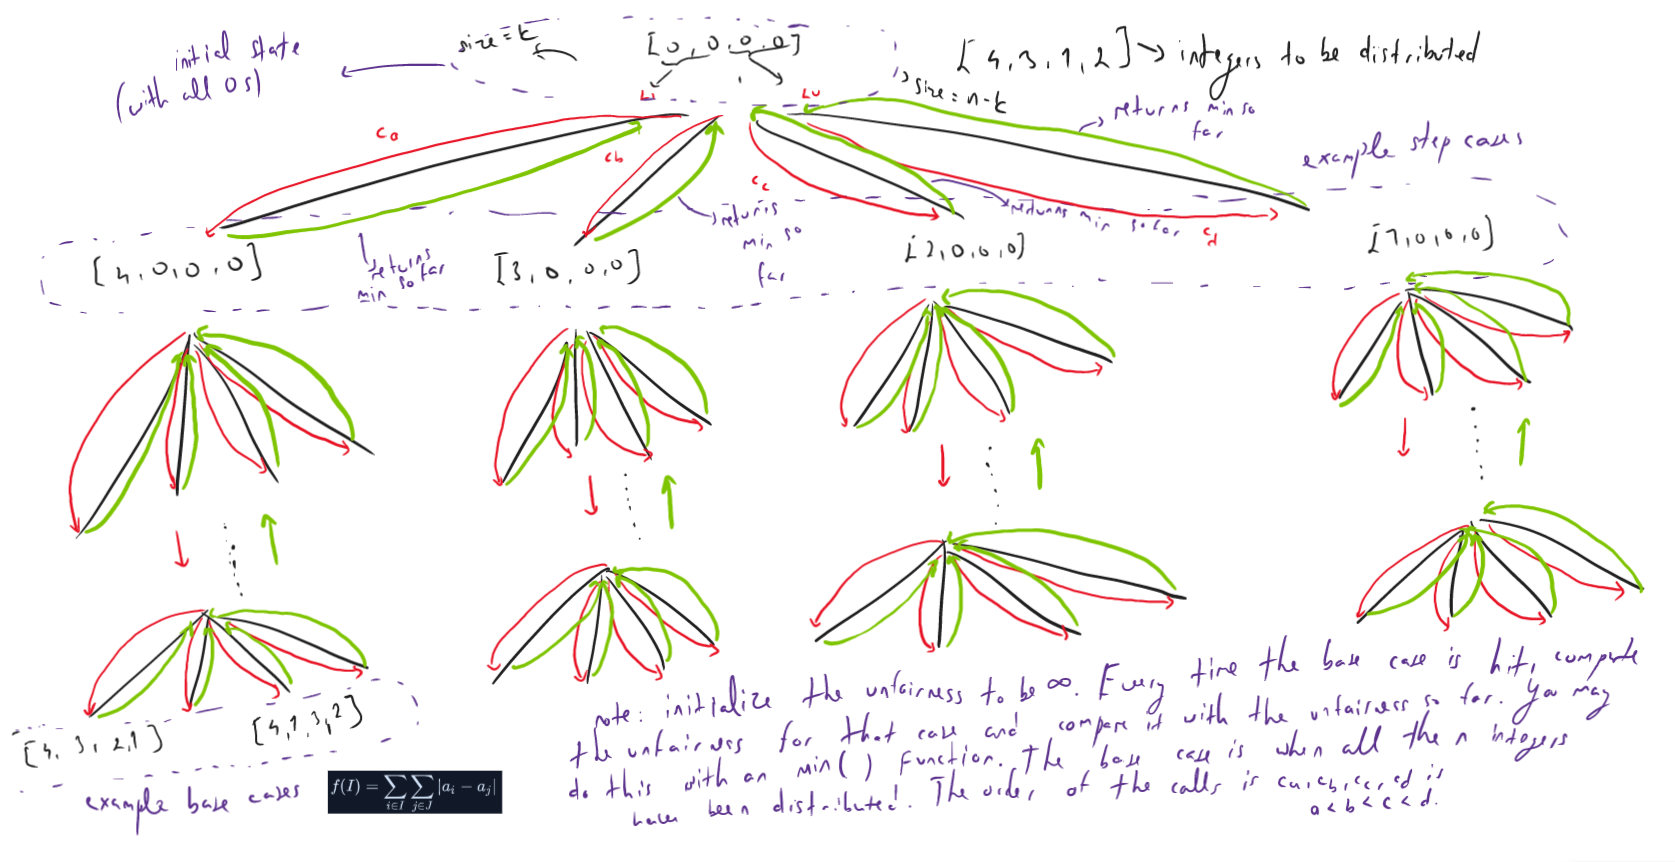 initial state
(with all 0s)
size = k
[0, 0, 0, 0]
[4, 3, 1, 2] → integers to be distributed
size = n-k
returns min so
far
example step cases
ca
cb
cc
cd
returns
min so
far
returns min so far
returns
min so far
[4, 0, 0, 0]
[3, 0, 0, 0]
[2, 0, 0, 0]
[1, 0, 0, 0]
[4, 3, 2, 1]
[4, 1, 3, 2]
example base cases
f(I) = ∑i∈I ∑j∈J |ai − aj|
note: initialize the unfairness to be ∞. Every time the base case is hit, compute
the unfairness for that case and compare it with the unfairness so far. You may
do this with an min() function. The base case is when all the n integers
have been distributed. The order of the calls is ca, cb, cc, cd is
a < b < c < d.